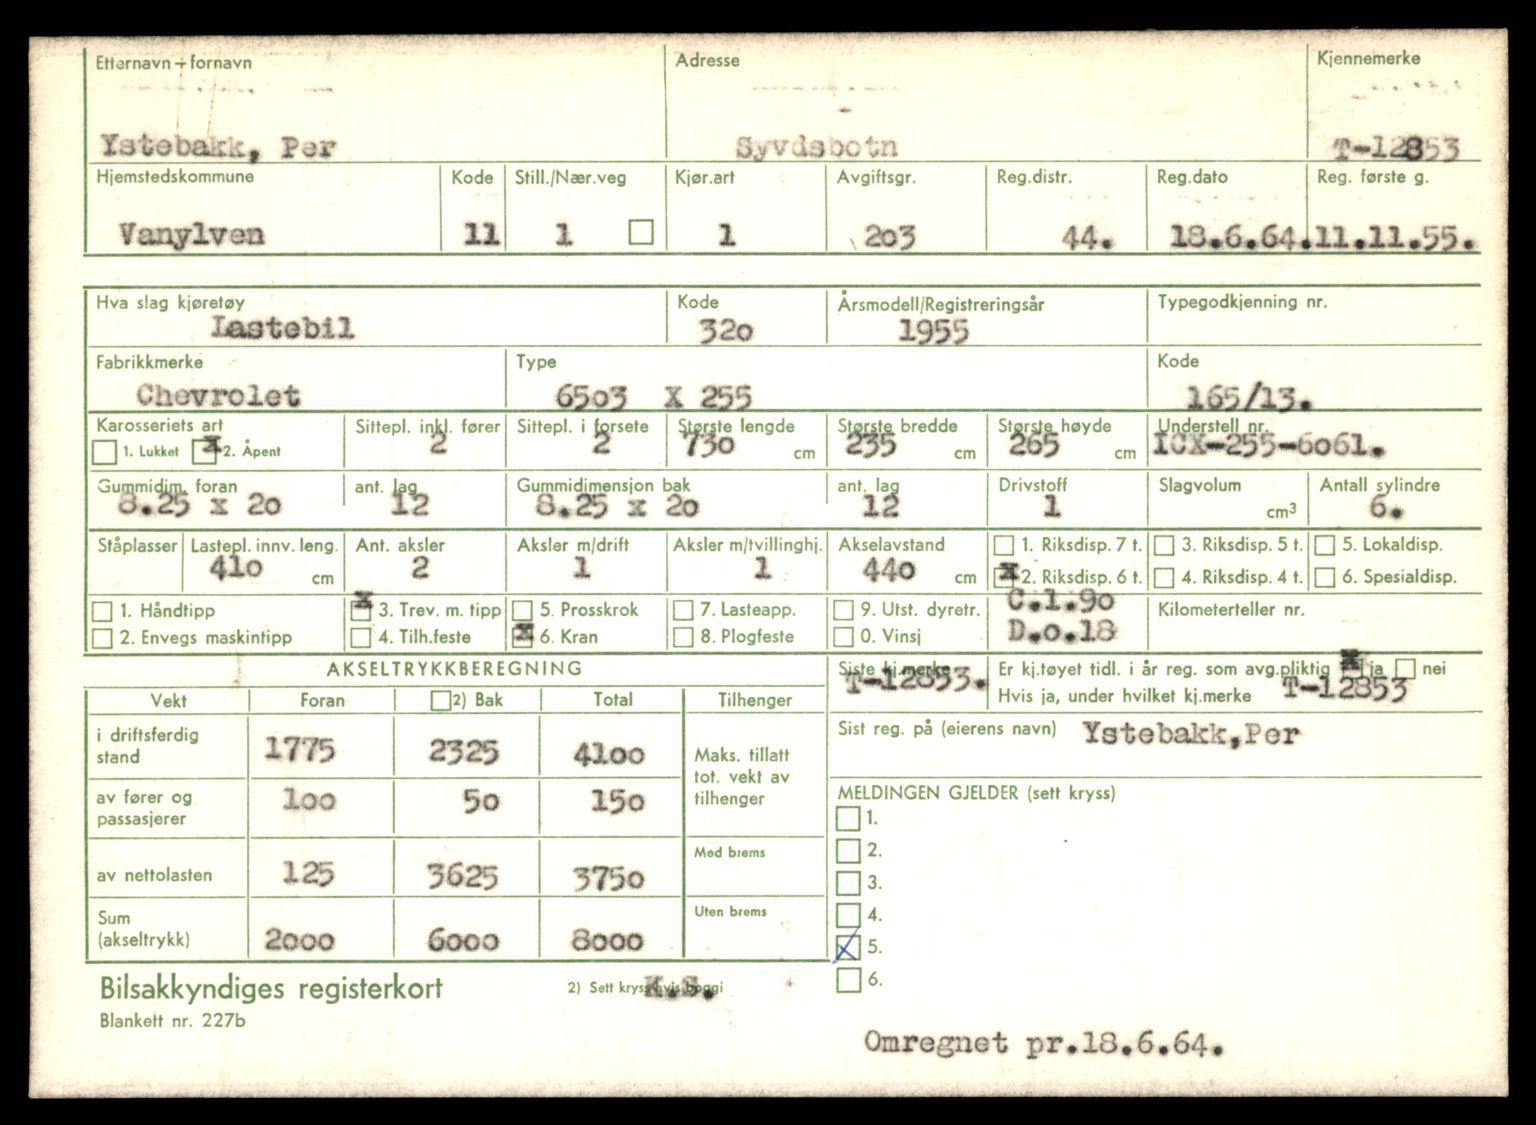 Etternavn + fornavn Adresse Kjennemerke
Ystebakk, Per Syvdsbotn T-12853
Hjemstedskommune Kode Still./Nær.veg Kjør.art Avgiftsgr. Reg.distr. Reg.dato Reg. første g.
Vanylven 11 1 1 203 44. 18.6.64. 11.11.55.
Hva slag kjøretøy Kode Årsmodell/Registreringsår Typegodkjenning nr.
Lastebil 320 1955
Fabrikkmerke Type Kode
Chevrolet 6503 X 255 165/13.
Karosseriets art Sittepl. inkl. fører Sittepl. i forsete Største lengde Største bredde Største høyde Understell nr.
1. Lukket x 2. Åpent 2 2 730 cm 235 cm 265 cm ICX-255-6061.
Gummidim. foran ant. lag Gummidimensjon bak ant. lag Drivstoff Slagvolum Antall sylindre
8.25 x 20 12 8.25 x 20 12 1 cm3 6.
Ståplasser Lastepl. innv. leng. Ant. aksler Aksler m/drift Aksler m/tvillinghj. Akselavstand 1. Riksdisp. 7 t. 3. Riksdisp. 5 t. 5. Lokaldisp.
410 cm 2 1 1 440 cm x 2. Riksdisp. 6 t. 4. Riksdisp. 4 t. 6. Spesialdisp.
1. Håndtipp x 3. Trev. m. tipp 5. Prosskrok 7. Lasteapp. 9. Utst. dyretr. C.1.90 Kilometerteller nr.
2. Envegs maskintipp 4. Tilh.feste x 6. Kran 8. Plogfeste 0. Vinsj D.o.18
AKSELTRYKKBEREGNING Siste kj.merke Er kj.tøyet tidl. i år reg. som avg.pliktig x ja nei
T-12853. Hvis ja, under hvilket kj.merke T-12853
Vekt Foran 2) Bak Total Tilhenger
Sist reg. på (eierens navn) Ystebakk,Per
i driftsferdig stand 1775 2325 4100 Maks. tillatt tot. vekt av tilhenger
MELDINGEN GJELDER (sett kryss)
av fører og passasjerer 100 50 150
1.
2.
Med brems
av nettolasten 125 3625 3750
3.
4.
Uten brems
Sum (akseltrykk) 2000 6000 8000
x 5.
6.
Bilsakkyndiges registerkort 2) Sett kryss hvis boggi K.S.
Blankett nr. 227b
Omregnet pr.18.6.64.